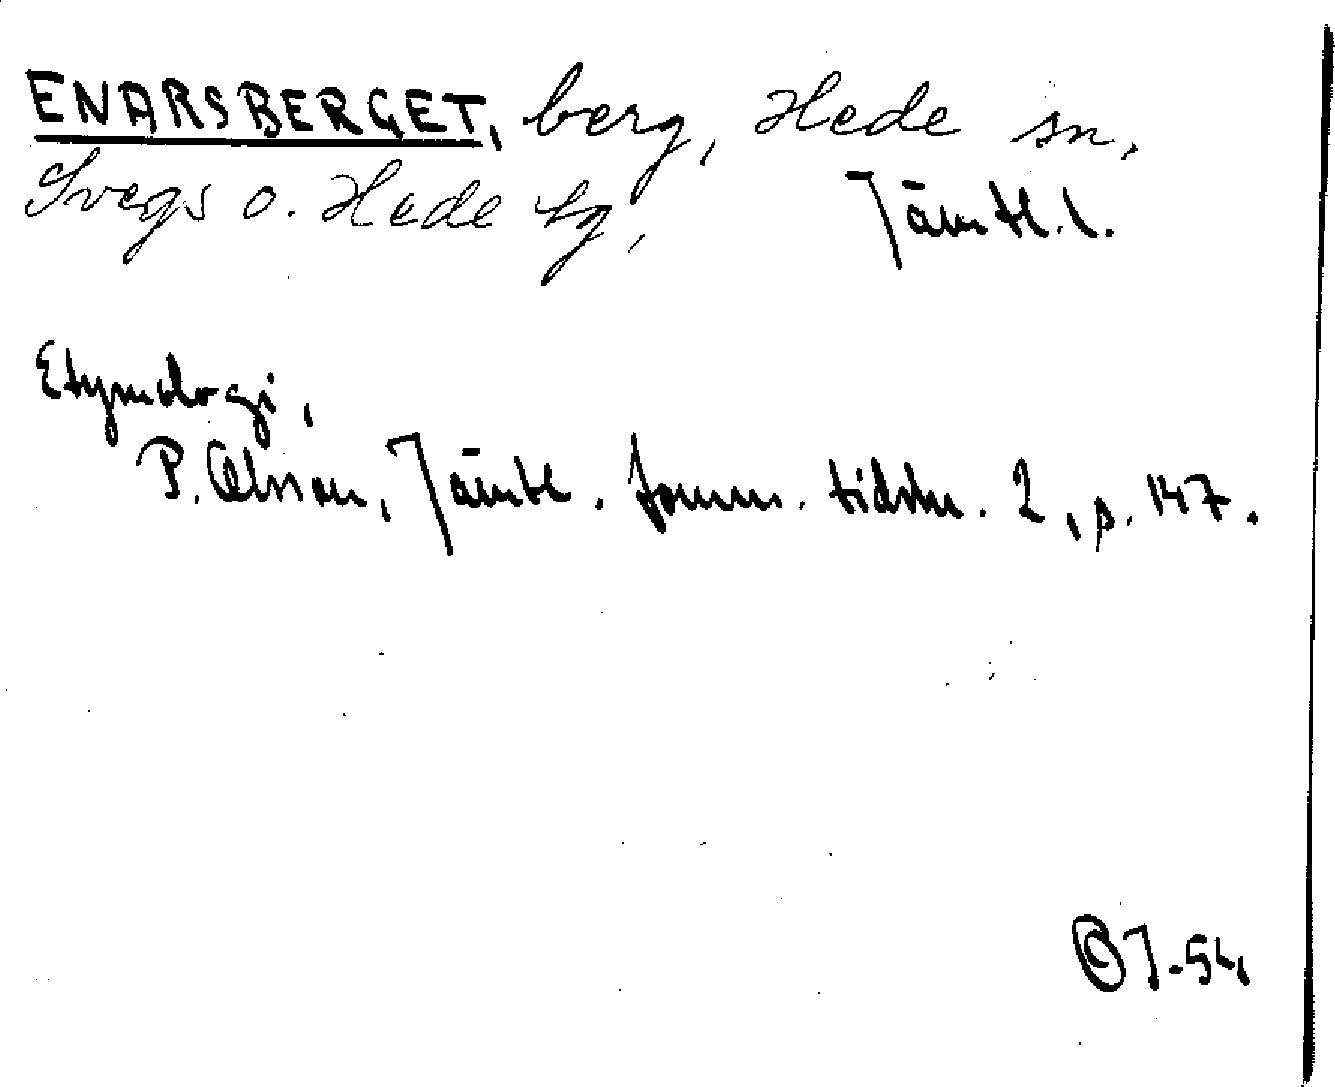 ENARSBERGET, berg, Hede sn,
Svegs o. Hede tg, Jämtl. l.
Etymologi,
P. Olsson, Jämtl. fornm. tidskr. 2, s. 147.
J-54